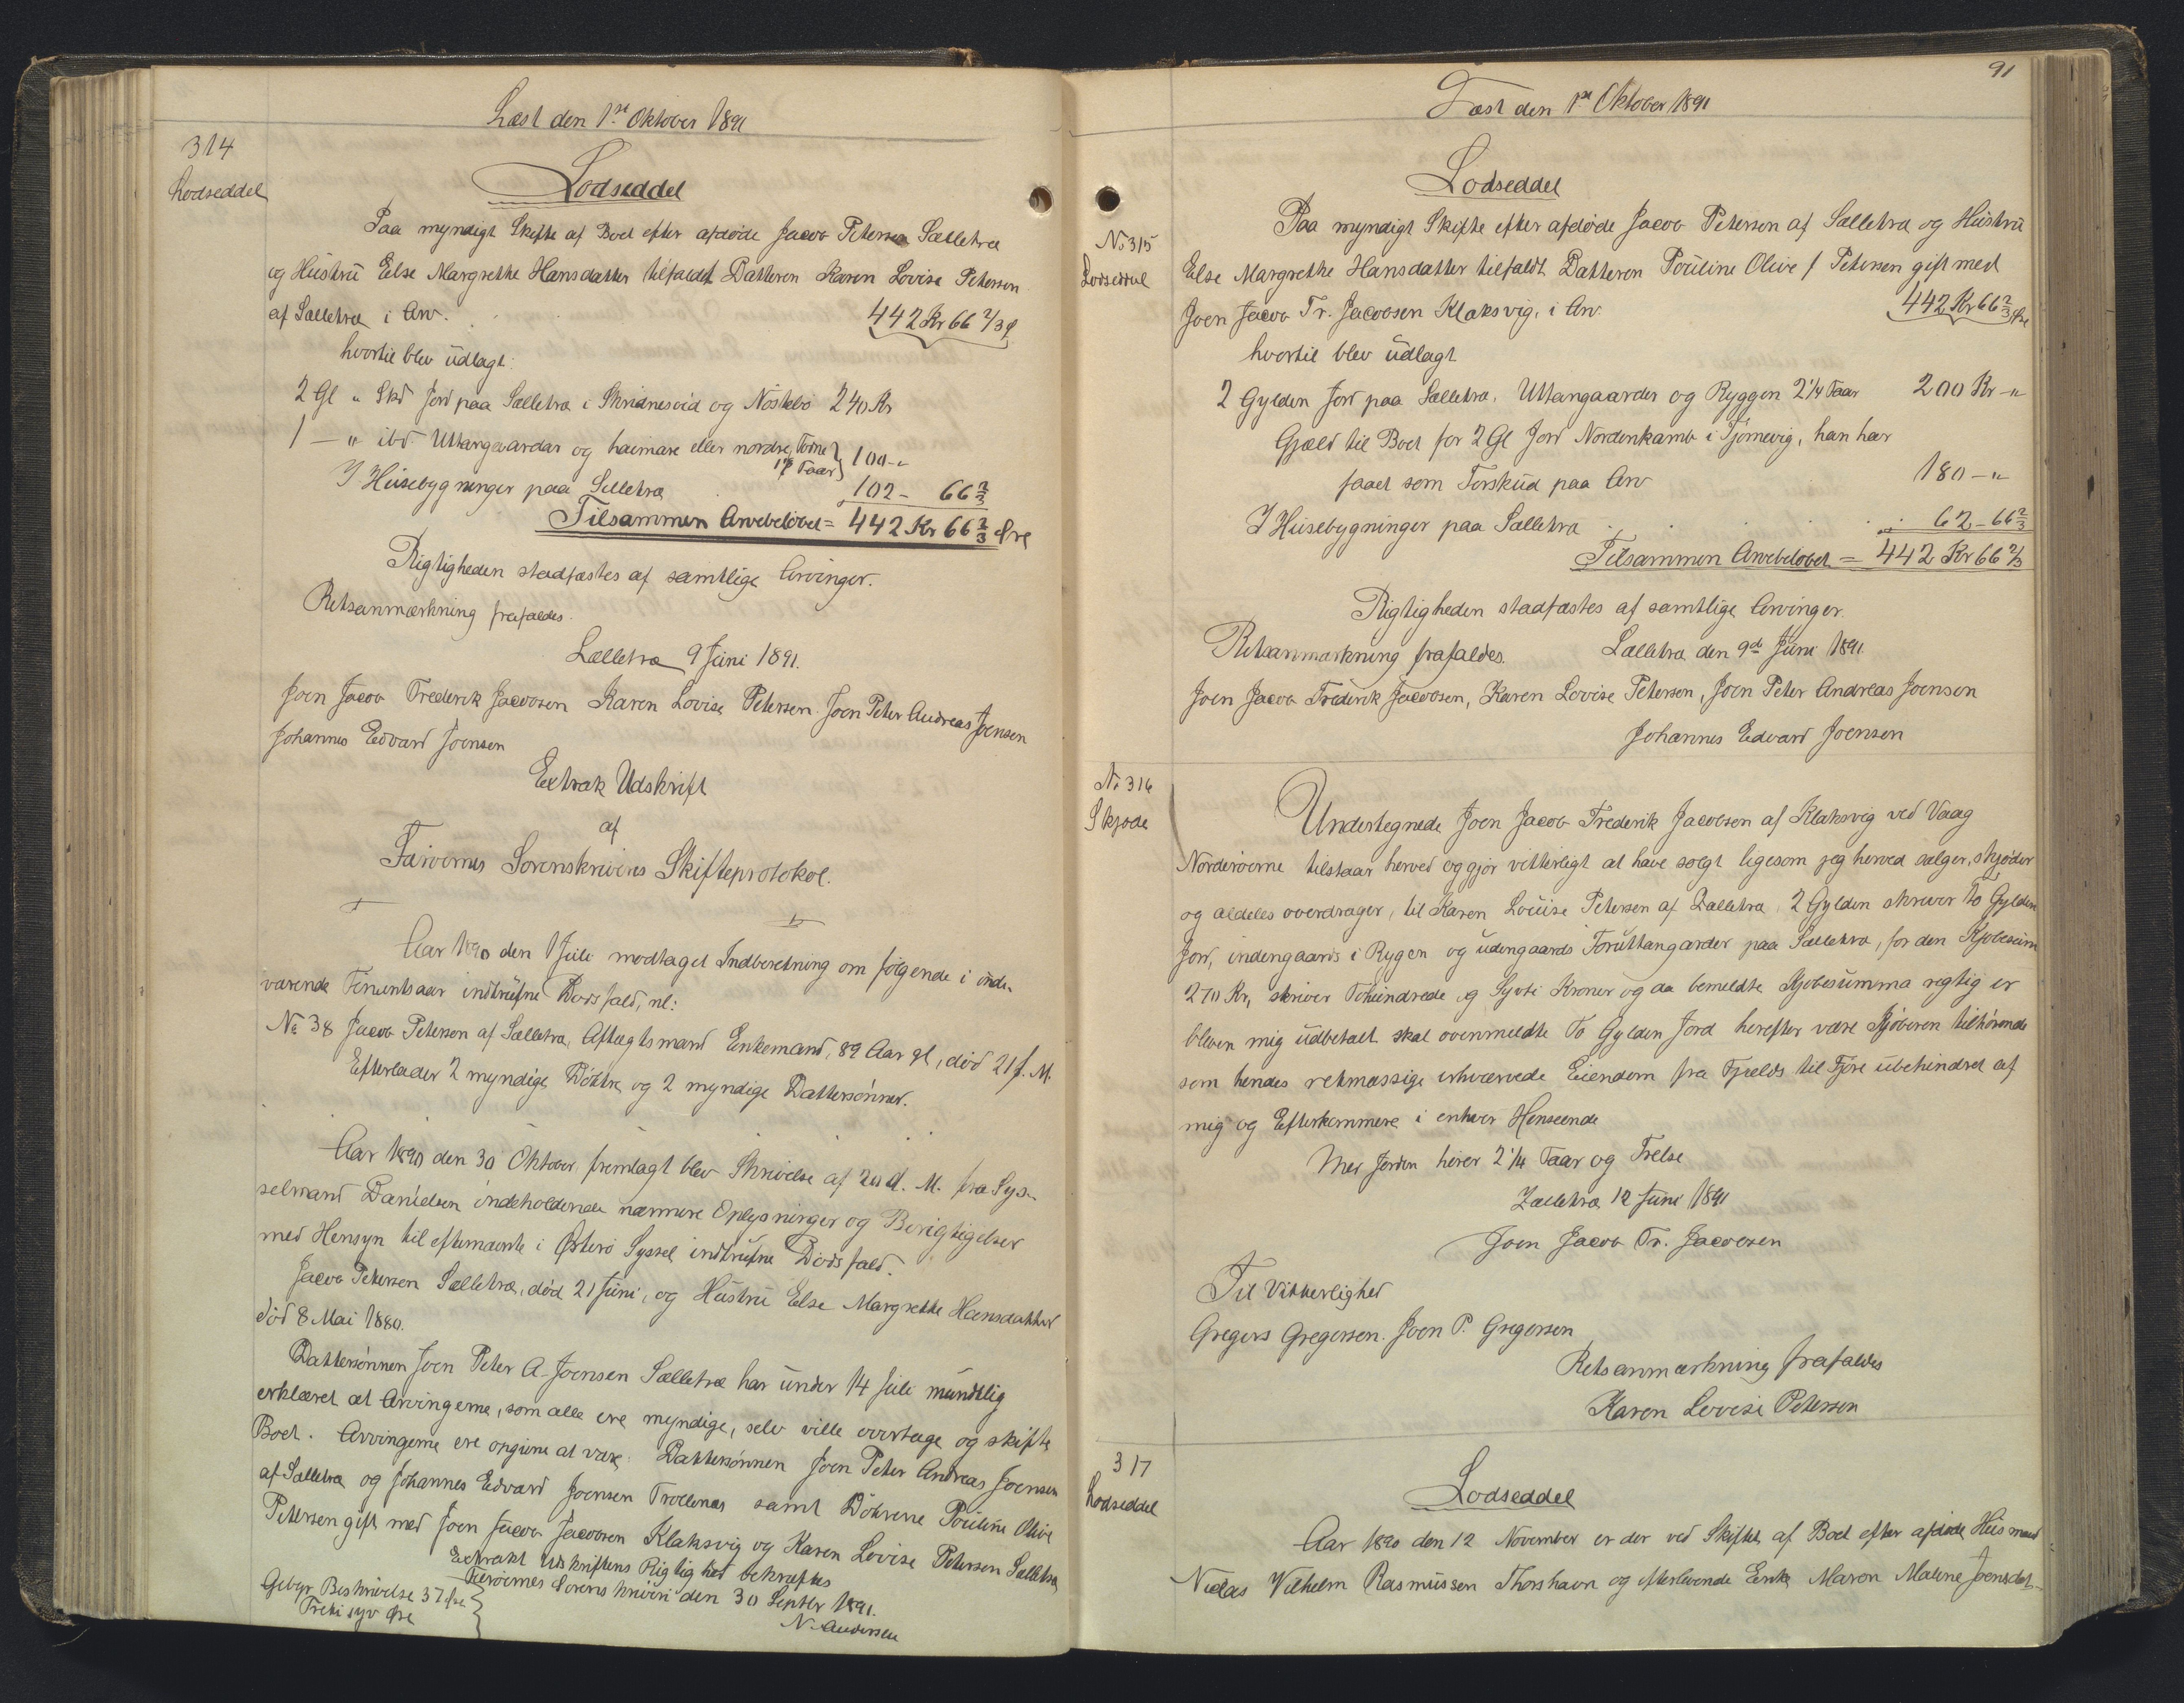 Læst den 1ste Oktober 1891
314
Lodseddel
Lodseddel
Paa myndigt Skifte af Boet efter afdøde Jacob Petersen Sælletræ
og Hústrú Else Margrethe Hansdatter tilfaldt Datteren Karen Lovise Petersen
af Sælletræ i Arv. 442 Kr 66 2/3 Ø
hvortil blev údlagt:
2 Gl " Skd Jord paa Sælletræ i Skridnesvid og Nøstebø 240 Kr
1 — " ibd Uttangaardar og haimare eller nordre Torne } 100 - "
1 1/8 Faar }
I Húsebygninger paa Selletræ 102 - 66 2/3
Tilsammen Arvebeløbet = 442 Kr 66 2/3 Øre
Rigtigheden stadfæstes af samtlige Arvinger.
Retsanmærkning frafaldes.
Sælletræ 9 Júni 1891.
Joen Jacob Frederik Jacobsen Karen Lovise Petersen Joen Peter Andreas Joensen
Johannes Edvard Joensen
Extrak Udskrift
af
Færøernes Sorenskriveris Skifteprotokol.
Aar 1890 den 1 Júli modtaget Indberetning om følgende i inde-
værende Finantsaar indtrúfne Dødsfald, nl:
No 38 Jacob Petersen af Sælletræ, Aftægtsmand Enkemand, 89 Aar gl, død 21 f. M.
Efterlader 2 myndige Døttre og 2 myndige Dattersønner.
Aar 1890 den 30 Oktober, fremlagt blev Skrivelse af 20 d. M. fra Sys-
selmand Danielsen indeholdende nærmere Oplysninger og Berigtigelser
med Hensyn til efternævnte i Østerø Syssel indtrúfne Dødsfald.
Jacob Petersen Sælletræ, død 21 Júni, og Hústrú Else Margrethe Hansdatter
død 8 Mai 1880.
Dattersønnen Joen Peter A. Joensen Sælletræ har únder 14 Júli múndtlig
erklæret at Arvingerne, som alle ere myndige, selv ville overtage og skifte
Boet. Arvingerne ere opgivne at være: Dattersønnen Joen Peter Andreas Joensen
af Sælletræ og Johannes Edvard Joensen Trøllenæs samt Døttrene Poúline Olive
Petersen gift med Joen Jacob Jacobsen Klaksvig og Karen Lovise Petersen Sælletræ
Extrakt Udskriftens Rigtighet bekræftes
Færøernes Sorenskriveri den 30 Septbr 1891.
N. Andersen
Gebyr Beskrivelse 37 Øre }
Treti syv Øre }
91
Læst den 1ste Oktober 1891
No 315
Lodseddel
Lodseddel
Paa myndigt Skifte efter afdøde Jacob Petersen af Sælletræ og Hústrú
Else Margrethe Hansdatter tilfaldt Datteren Poúline Olive f Petersen gift med
Joen Jacob Fr. Jacobsen Klaksvig, i Arv. 442 Kr 66 2/3 Øre
hvortil blev údlagt
2 Gylden Jord paa Sælletræ, Uttangaarder og Ryggen 2 1/4 Faar 200 Kr - "
Gjæld til Boet for 2 Gl Jord Nordenkamb i Tjørnevig, han har
faaet som Forskúd paa Arv 180 - "
I Húsebygninger paa Sælletræ 62 - 66 2/3
Tilsammen Arvebeløbet = 442 Kr 66 2/3
Rigtigheden stadfæstes af samtlige Arvinger.
Retsanmærkning frafaldes. Sælletræ den 9de Júni 1891
Joen Jacob Frederik Jacobsen, Karen Lovise Petersen, Joen Peter Andreas Joensen
Johannes Edvard Joensen
No 316
Skjøde
Undertegnede Joen Jacob Frederik Jacobsen af Klaksvig ved Vaag
Norderøerne tilstaar herved og gjør vitterligt at have solgt ligesom jeg herved sælger, skjøder
og aldeles overdrager, til Karen Loúise Petersen af Sælletræ 2 Gylden skriver To Gylden
Jord, indengaards i Rygen og údengaards Forúttangarder paa Sælletræ, for den Kjøbesúm
270 Kr, skriver Tohúndrede og Syvti Kroner og da bemeldte Kjøbesúmma rigtig er
bleven mig údbetalt skal ovenmeldte To Gylden Jord herefter være Kjøberen tilhørende
som hendes retmæssige erhværvede Eiendom fra Fjelds til Fjøre úbehindret af
mig og Efterkommere i enhver Henseende
Med Jorden hører 2 1/4 Faar og Frelse
Sælletræ 12 Júni 1891
Joen Jacob Fr. Jacobsen
Til Vitterlighed
Gregers Gregersen. Joen P. Gregersen
Retsanmærkning frafaldes
Karen Lovise Petersen
317
Lodseddel
Lodseddel
Aar 1890 den 12 November er der ved Skiftet af Boet efter afdøde Húsmand
Niclas Vilhelm Rasmússen Thorshavn og efterlevende Enke Maren Malene Joensdat-